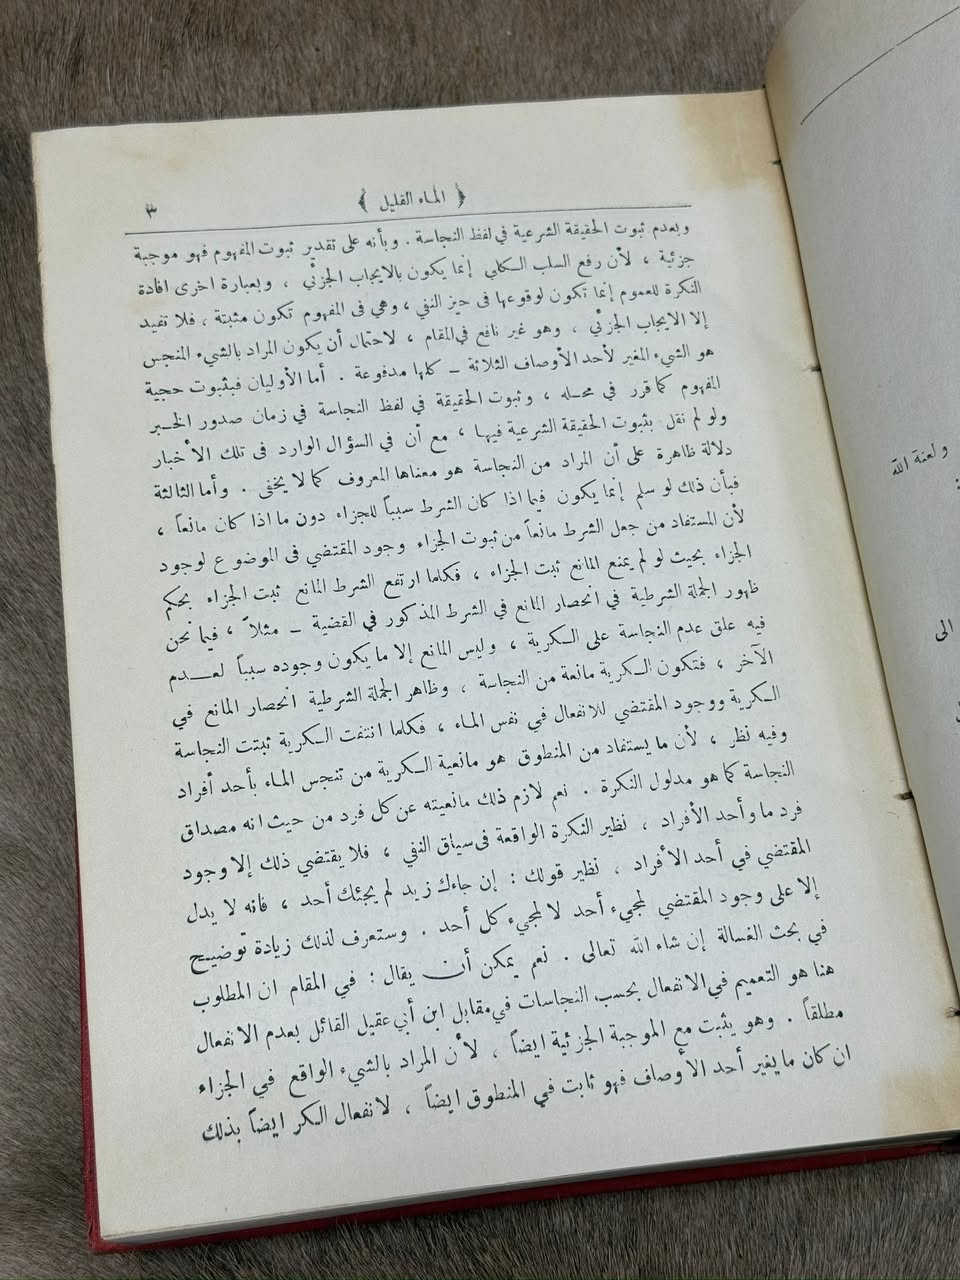 ﴿ الماء القليل ﴾
٣
وبعدم ثبوت الحقيقة الشرعية في لفظ النجاسة . وبأنه على تقدير ثبوت المفهوم فهو موجبة
جزئية ، لأن رفع السلب الكلي إنما يكون بالايجاب الجزئي ، وبعبارة اخرى افادة
النكرة للعموم إنما تكون لوقوعها في حيز النفي ، وهي في المفهوم تكون مثبتة ، فلا تفيد
إلا الايجاب الجزئي . وهو غير نافع في المقام ، لاحتمال أن يكون المراد بالشيء المنجس
هو الشيء المغير لأحد الأوصاف الثلاثة ـ كلها مدفوعة . أما الأوليان فبثبوت حجية
المفهوم كما قرر في محله ، وثبوت الحقيقة في لفظ النجاسة في زمان صدور الخبر
ولو لم نقل بثبوت الحقيقة الشرعية فيها ، مع أن في السؤال الوارد في تلك الأخبار
دلالة ظاهرة على أن المراد من النجاسة هو معناها المعروف كما لا يخفى . وأما الثالثة
فبأن ذلك لو سلم إنما يكون فيما اذا كان الشرط سبباً للجزاء دون ما اذا كان مانعاً ،
لأن المستفاد من جعل الشرط مانعاً من ثبوت الجزاء وجود المقتضي في الموضوع لوجود
الجزاء بحيث لو لم يمنع المانع ثبت الجزاء ، فكلما ارتفع الشرط المانع ثبت الجزاء بحكم
ظهور الجملة الشرطية في انحصار المانع في الشرط المذكور في القضية ـ مثلاً ، فيما نحن
فيه علق عدم النجاسة على الكرية ، وليس المانع إلا ما يكون وجوده سبباً لعدم
الآخر ، فتكون الكرية مانعة من النجاسة ، وظاهر الجملة الشرطية انحصار المانع في
الكرية ووجود المقتضي للانفعال في نفس الماء ، فكلما انتفت الكرية ثبتت النجاسة
وفيه نظر ، لأن ما يستفاد من المنطوق هو مانعية الكرية من تنجس الماء بأحد أفراد
النجاسة كما هو مدلول النكرة . نعم لازم ذلك مانعيته عن كل فرد من حيث انه مصداق
فرد ما وأحد الأفراد ، نظير النكرة الواقعة في سياق النفي ، فلا يقتضي ذلك إلا وجود
المقتضي في أحد الأفراد . نظير قولك : إن جاءك زيد لم يجئك أحد ، فانه لا يدل
إلا على وجود المقتضي لمجيء أحد لا لمجيء كل أحد . وستعرف لذلك زيادة توضيح
في بحث الغسالة إن شاء الله تعالى . نعم يمكن أن يقال : في المقام ان المطلوب
هنا هو التعميم في الانفعال بحسب النجاسات في مقابل ابن أبي عقيل القائل بعدم الانفعال
مطلقاً . وهو يثبت مع الموجبة الجزئية ايضاً ، لأن المراد بالشيء الواقع في الجزاء
ان كان ما يغير أحد الأوصاف فهو ثابت في المنطوق ايضاً ، لانفعال الكر ايضاً بذلك
ولعنة الله
الى